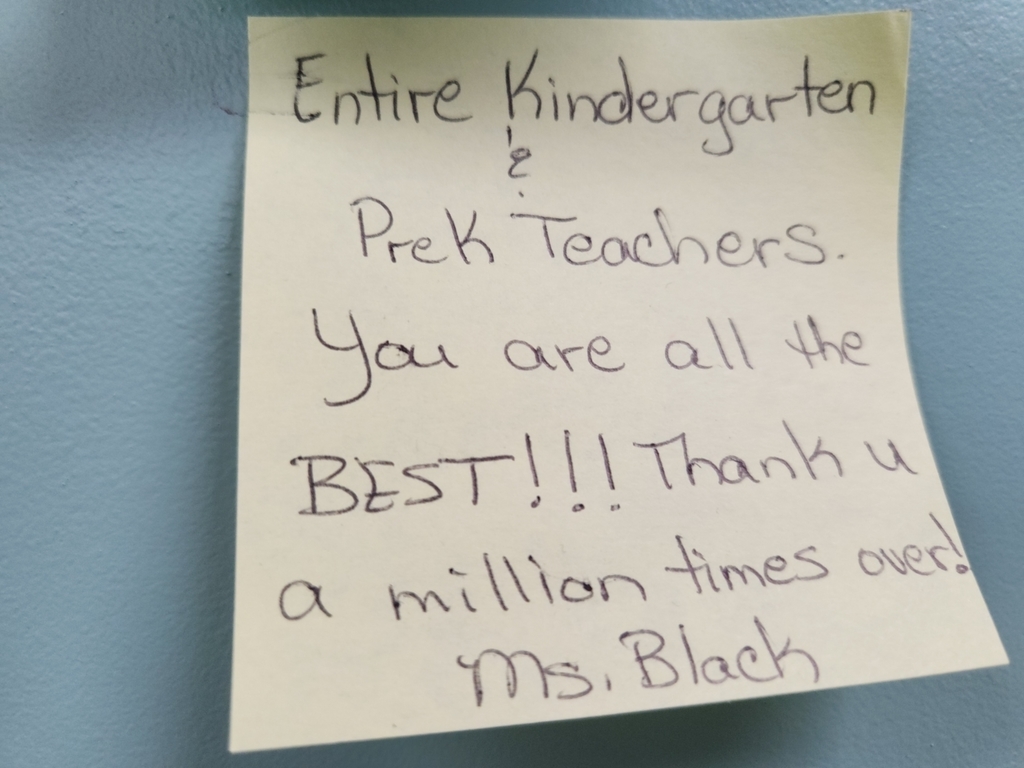 Entire Kindergarten
&
PreK Teachers.
You are all the
BEST!!! Thank u
a million times over!
Ms. Black